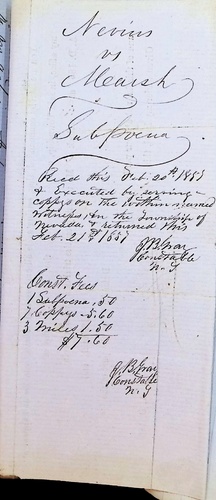 Nevins
vs
Marsh
Subpoena
Recd this Feb. 20th 1857
& Executed by serving
coppys on the within named
Witness in the Township of
Nevada & returned this
Feb. 21st 1857
J. B. Gray
Constable
N. T
Const. Fees
1 Subpoena .50
7 Coppys - 5.60
3 miles 1.50
$7.60
J. B. Gray
Constable
N. T